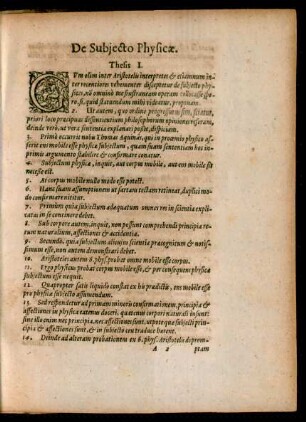 De Subjecto Physicæ.
Thesis I.
CUm olim inter Aristotelis interpretes & etiamnum in-
ter recentiores vehementer disceptetur de subjecto phy-
sicæ, nō omninò me frustraneam operam collocasse spe-
ro, si, quid statuendum mihi videatur, proponam.
2. Ut autem, quo ordine progressurus sim, sciatur,
priori loco præcipuas dissentientium philosophorum opiniones recitabo,
deinde verò, ut vera sententia explicari possit, disspiciam.
3. Primò occurrit nobis Thomas Aquinas, qui in proœmio physico asse-
rit ens mobile esse physicæ subjectum, quam suam sententiam hoc in-
primis argumento stabilire & confirmare conatur.
4. Subjectum physicæ, inquit, aut corpus mobile, aut ens mobile sit
necesse est.
5. At corpus mobile nullo modo esse potest.
6. Hanc suam assumptionem ut sartam tectam retineat, duplici mo-
do confirmare nititur.
7. Primùm quia subjectum adæquatum omnes res in scientia expli-
catas in se continere debet.
8. Sub corpore autem, inquit, non possunt comprehendi principia re-
rum naturalium, affectiones & accidentia.
9. Secundò, quia subjectum alicujus scientiæ præcognitum & notis-
simum esse, non autem demonstrari debet.
10. Aristoteles autem 6. phys. probat omne mobile esse corpus.
11. Ergo physicus probat corpus mobile esse, & per consequens physicæ
subjectum esse nequit.
12. Quapropter satis liquidò constat ex his prædictis, ens mobile esse
pro physicæ subjecto assumendum.
13. Sed respondetur ad primam minoris confirmationem, principia &
affectiones in physica eatenus doceri, quatenus corpori naturali insunt:
sine illo enim nec principia, nec affectiones sunt, at verò, utpote quæ subjecti princi-
pia & affectiones sunt, & in subjecto contractæ hærent.
14. Deinde ad alteram probationem ex 6. phys. Aristotelis deprom-
A 2 ptam